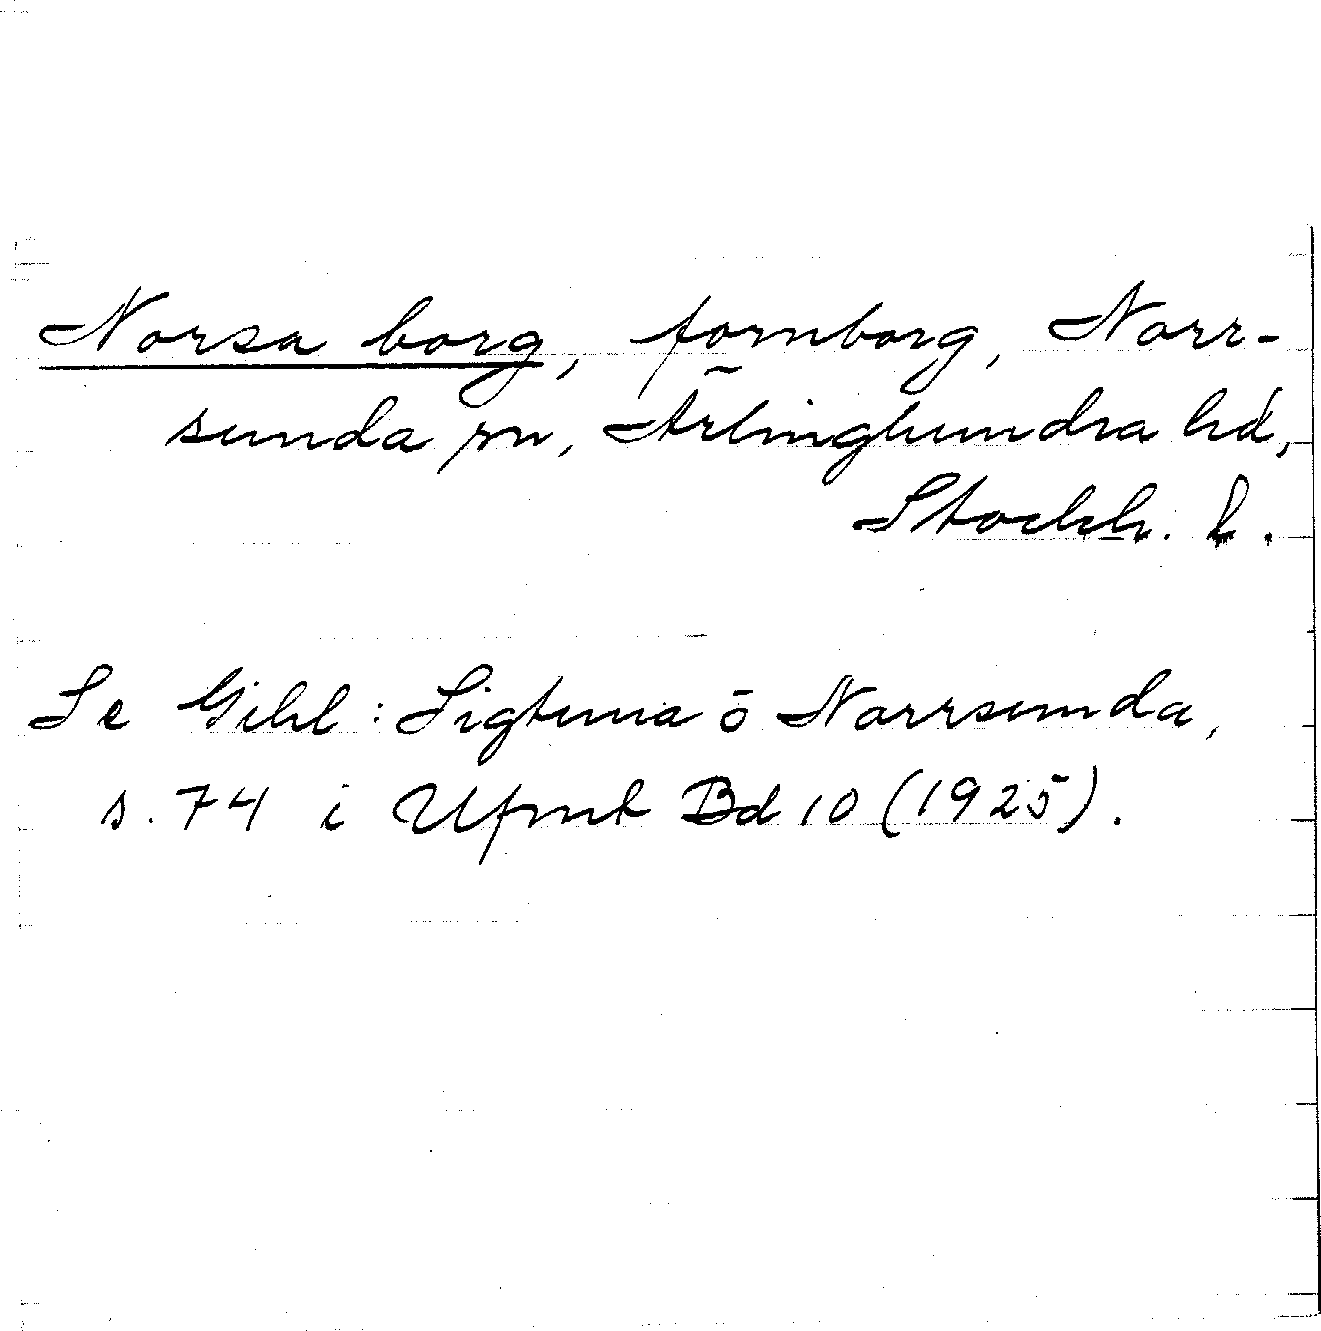 Norsa borg, fornborg, Norr-
sunda sn, Ärlinghundra hd,
Stockh. l.
Se Gihl: Sigtuna ō Norrsunda,
s. 74 i Ufmt Bd 10 (1925).